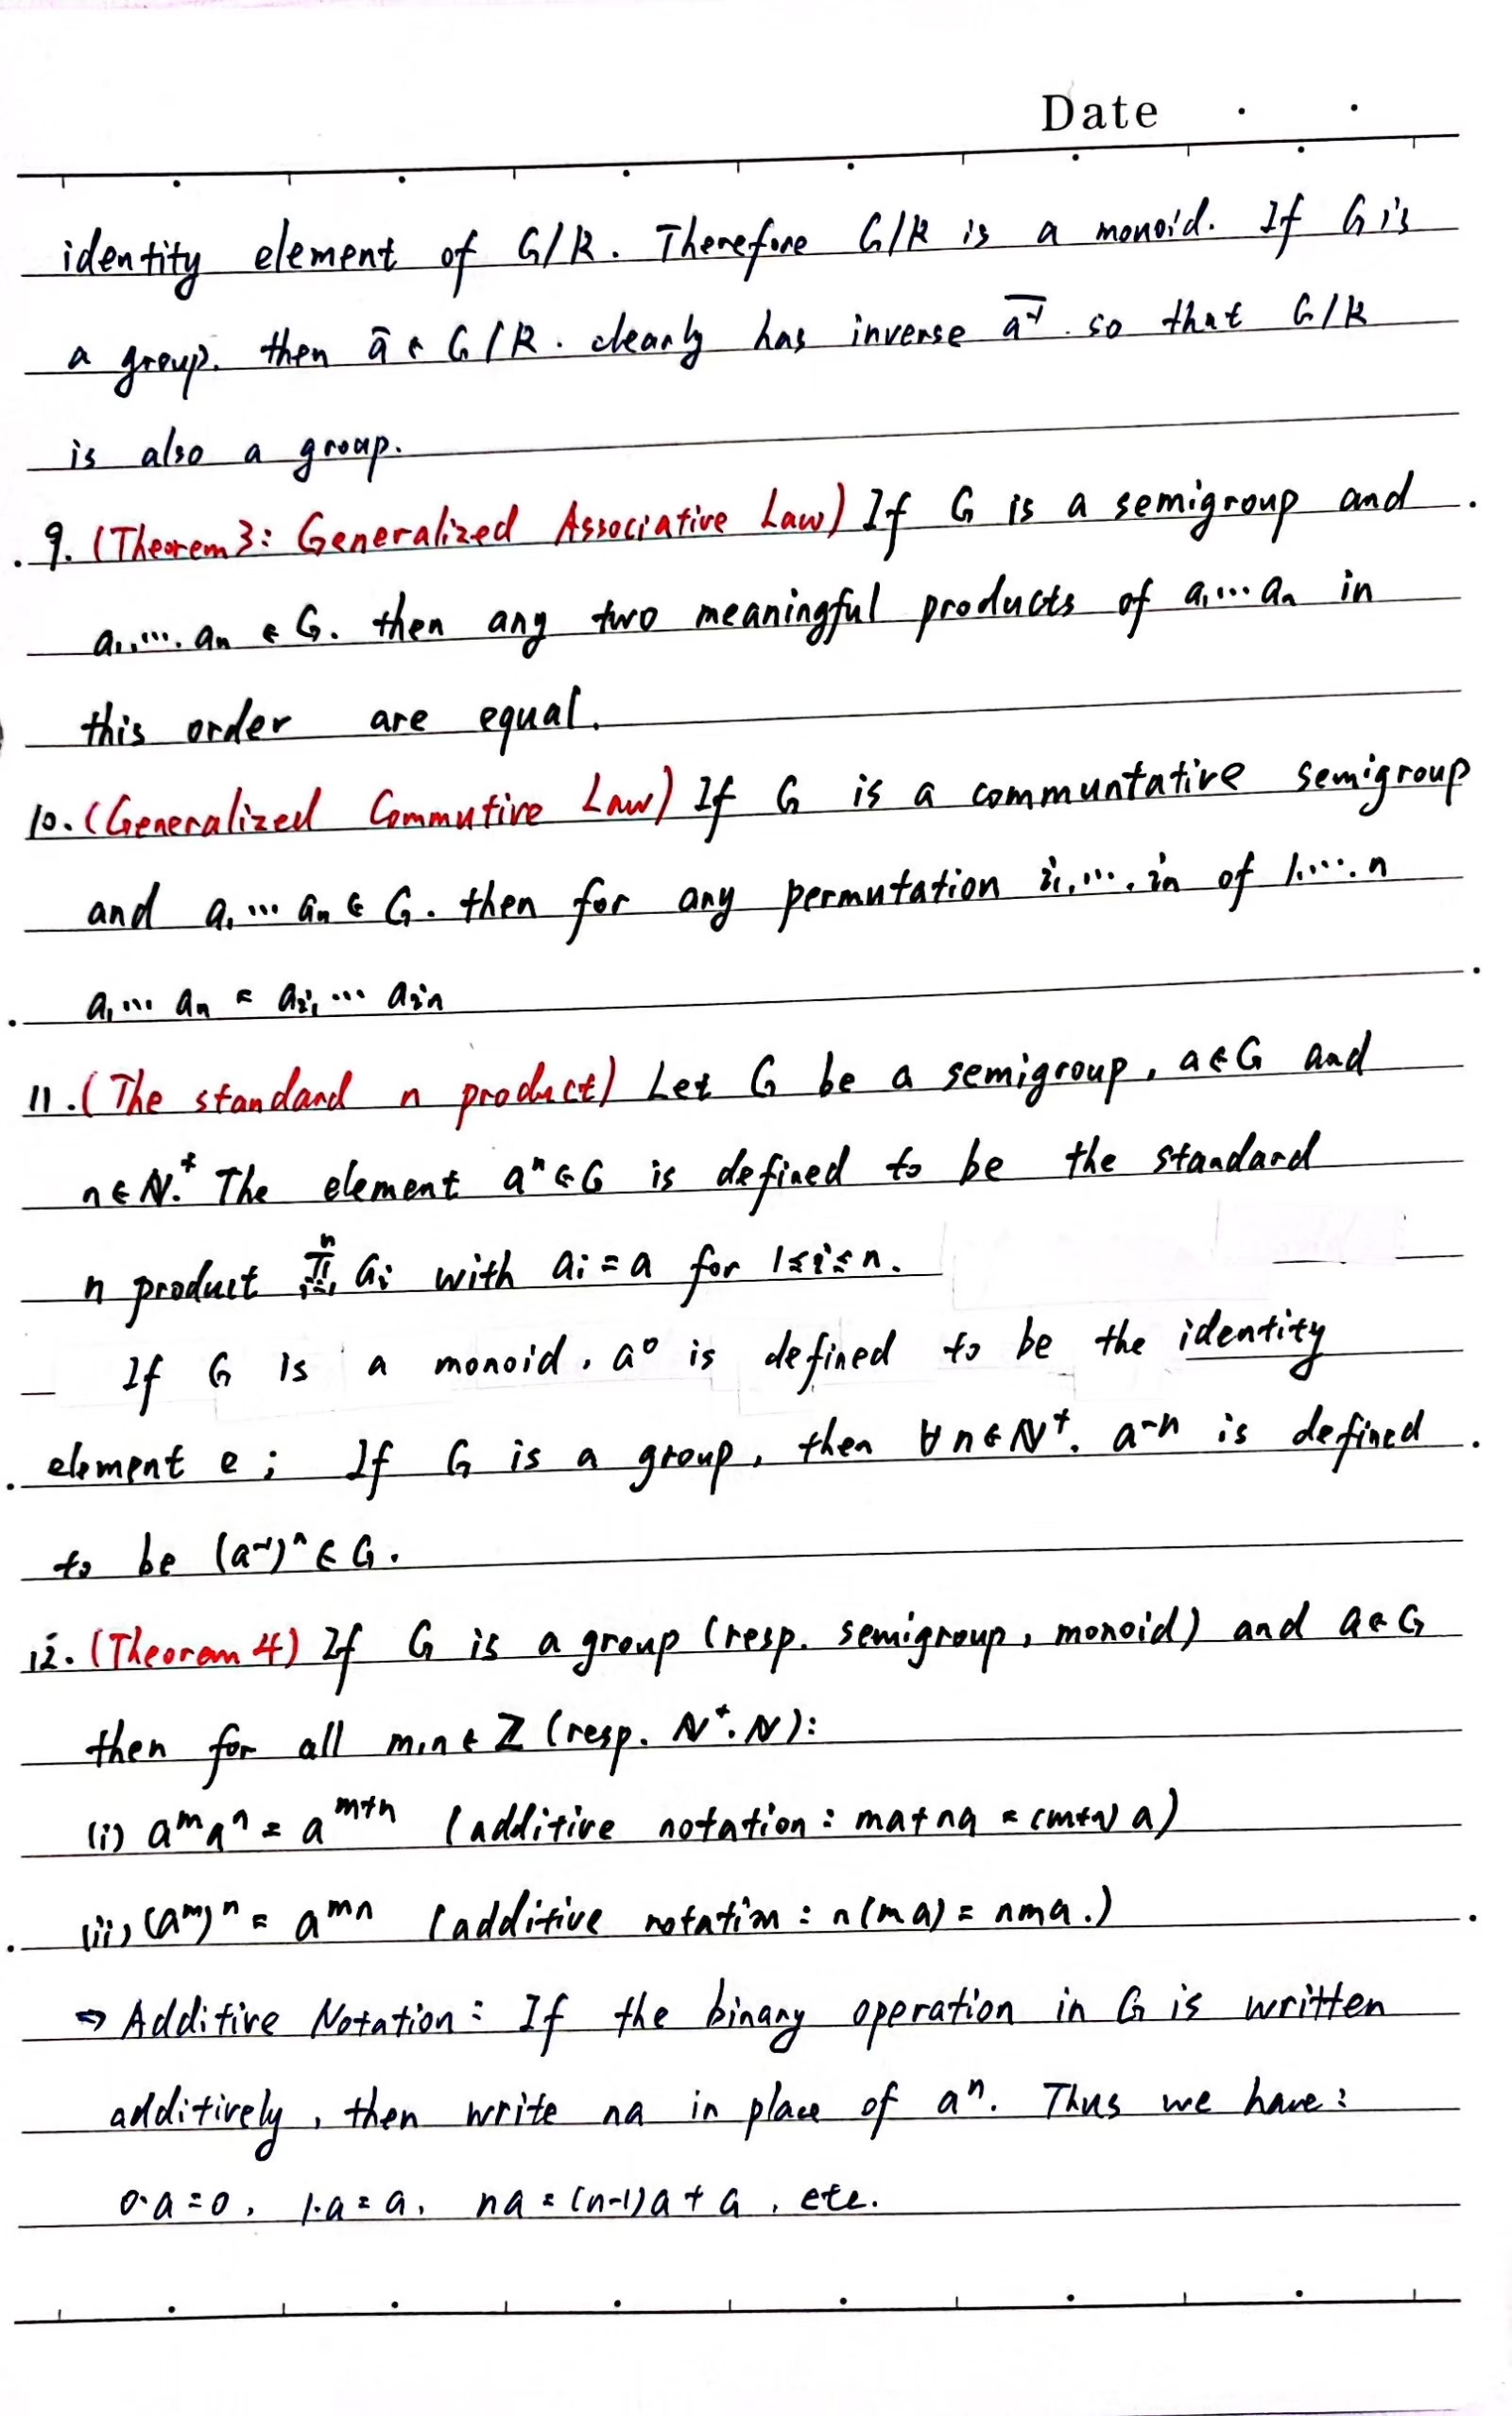 Date . .
identity element of G/R. Therefore G/R is a monoid. If G is
a group. then ā ∈ G/R. clearly has inverse \overline{a^{-1}}. so that G/R
is also a group.
9. (Theorem 3: Generalized Associative Law) If G is a semigroup and
a₁,…. aₙ ∈ G. then any two meaningful products of a₁…aₙ in
this order are equal.
10. (Generalized Commutive Law) If G is a communtative semigroup
and a₁ … aₙ ∈ G. then for any permutation i₁,…. iₙ of 1.…. n
a₁ … aₙ = a_{i₁} … a_{iₙ}
11. (The standard n product) Let G be a semigroup, a∈G and
n∈N⁺. The element aⁿ∈G is defined to be the standard
n product ∏_{i=1}^{n} aᵢ with aᵢ=a for 1≤i≤n.
If G is a monoid. a⁰ is defined to be the identity
element e; If G is a group, then ∀n∈N⁺. a⁻ⁿ is defined
to be (a⁻¹)ⁿ∈G.
12. (Theorem 4) If G is a group (resp. semigroup, monoid) and a∈G
then for all m,n∈Z (resp. N⁺. N):
(i) aᵐaⁿ = aᵐ⁺ⁿ (additive notation: ma+na = (m+n)a)
(ii) (aᵐ)ⁿ = aᵐⁿ (additive notation: n(ma) = nma.)
⇒ Additive Notation: If the binary operation in G is written
additively, then write na in place of aⁿ. Thus we have:
0·a=0, 1·a=a, na=(n-1)a+a, etc.